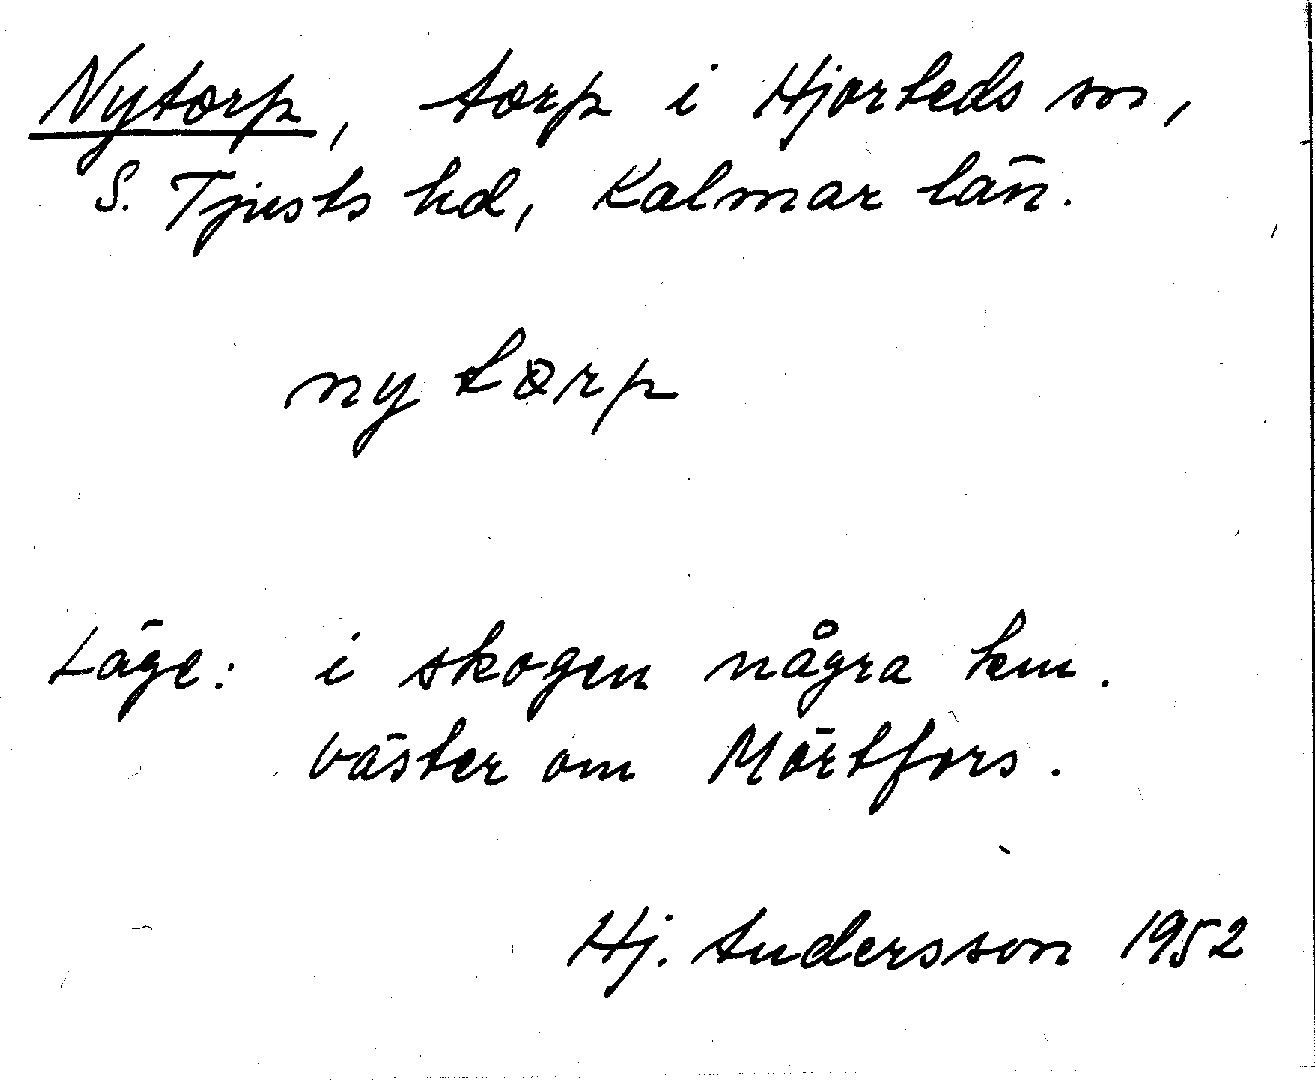 Nytorp, torp i Hjorteds sn,
S. Tjusts hd, Kalmar län.
nytorp
Läge: i skogen några km.
väster om Mörtfors.
Hj. Andersson 1952